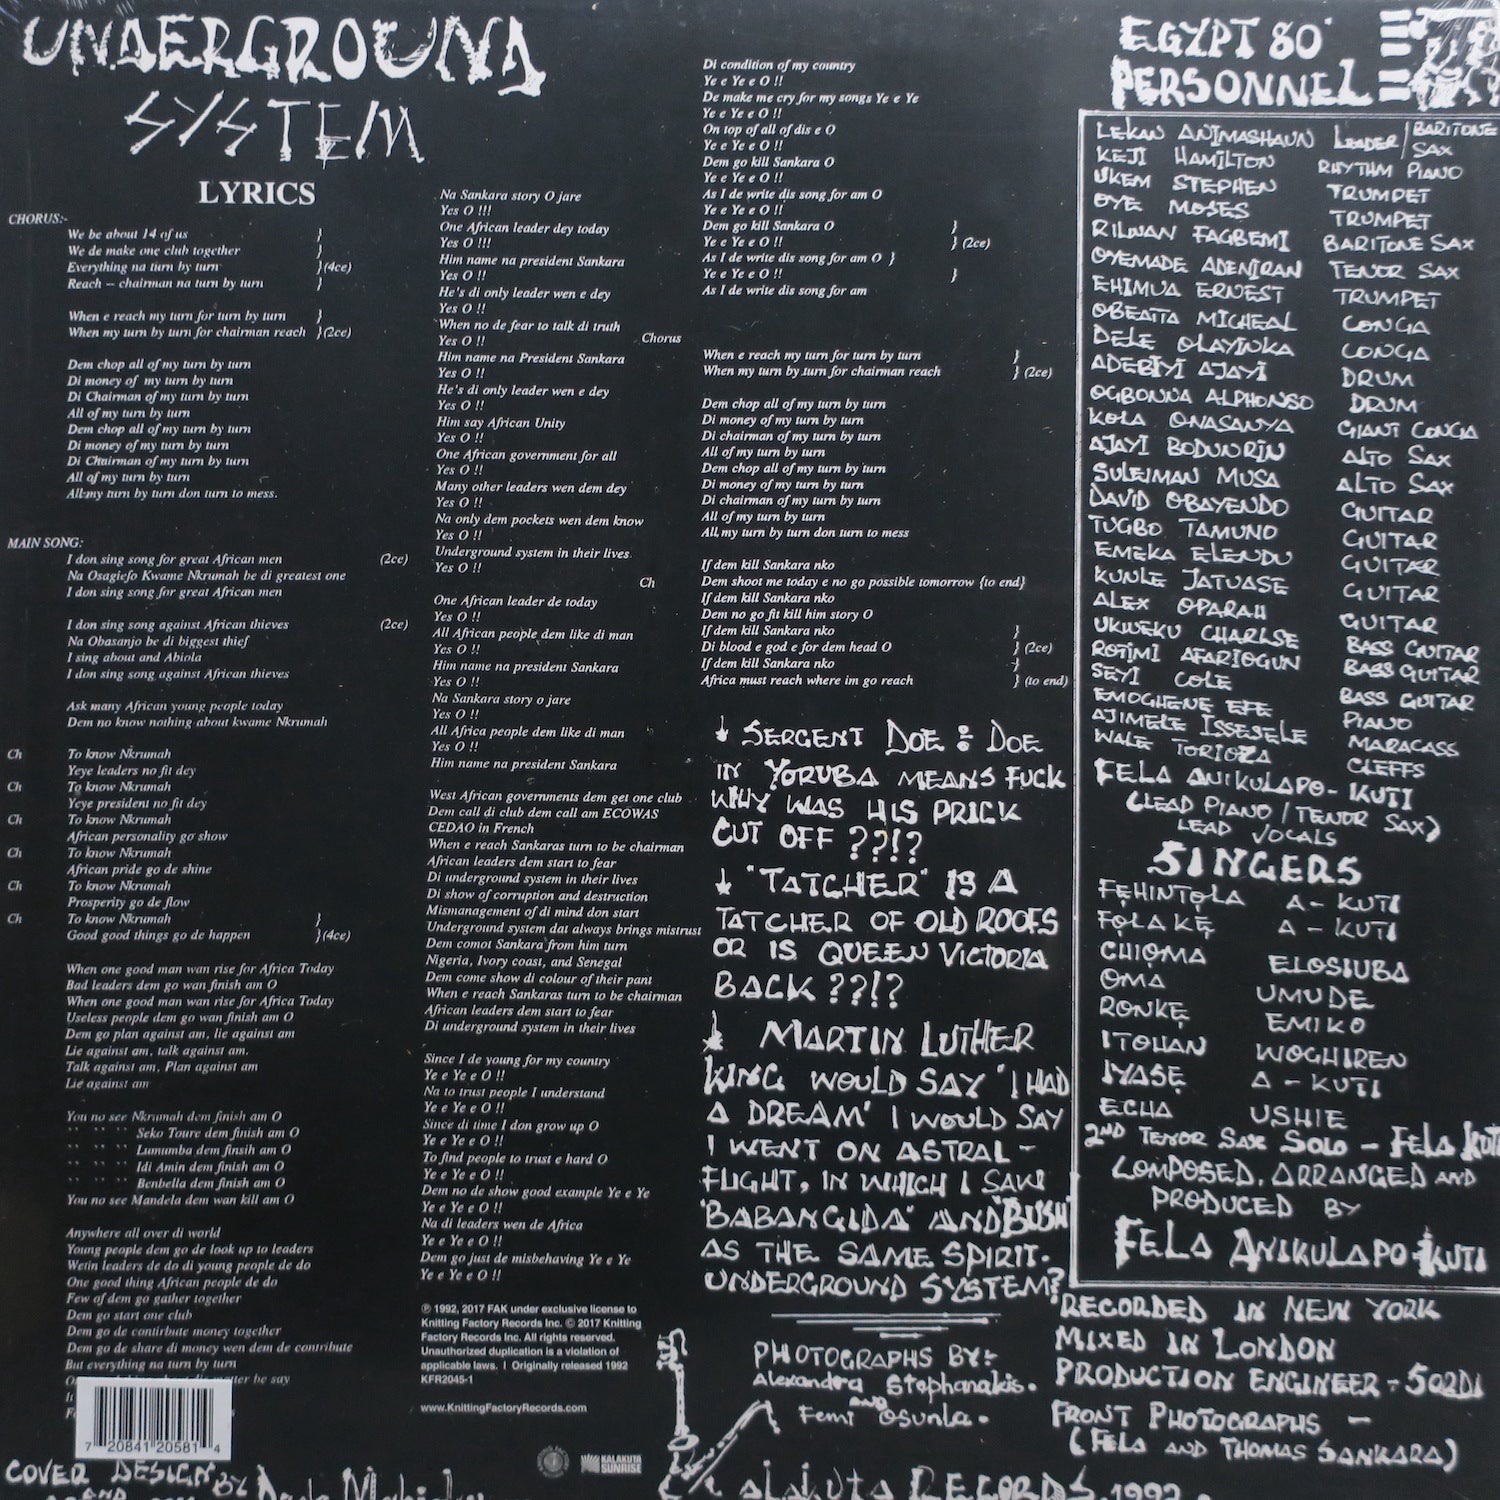 UNDERGROUND
SYSTEM
LYRICS
CHORUS:-
We be about 14 of us }
We de make one club together }
Everything na turn by turn }(4ce)
Reach -- chairman na turn by turn }
When e reach my turn for turn by turn }
When my turn by turn for chairman reach }(2ce)
Dem chop all of my turn by turn
Di money of my turn by turn
Di Chairman of my turn by turn
All of my turn by turn
Dem chop all of my turn by turn
Di money of my turn by turn
Di Chairman of my turn by turn
All of my turn by turn
All my turn by turn don turn to mess.
MAIN SONG:
I don sing song for great African men (2ce)
Na Osagiefo Kwame Nkrumah be di greatest one
I don sing song for great African men
I don sing song against African thieves (2ce)
Na Obasanjo be di biggest thief
I sing about and Abiola
I don sing song against African thieves
Ask many African young people today
Dem no know nothing about kwame Nkrumah
Ch To know Nkrumah
Yeye leaders no fit dey
Ch To know Nkrumah
Yeye president no fit dey
Ch To know Nkrumah
African personality go show
Ch To know Nkrumah
African pride go de shine
Ch To know Nkrumah
Prosperity go de flow
Ch To know Nkrumah }
Good good things go de happen }(4ce)
When one good man wan rise for Africa Today
Bad leaders dem go wan finish am O
When one good man wan rise for Africa Today
Useless people dem go wan finish am O
Dem go plan against am, lie against am
Lie against am, talk against am.
Talk against am, Plan against am
Lie against am
You no see Nkrumah dem finish am O
" " " Seko Toure dem finish am O
" " " Lumumba dem finsih am O
" " " Idi Amin dem finish am O
" " " Benbella dem finish am O
You no see Mandela dem wan kill am O
Anywhere all over di world
Young people dem go de look up to leaders
Wetin leaders de do di young people de do
One good thing African people de do
Few of dem go gather together
Dem go start one club
Dem go de contirbute money together
Dem go de share di money wen dem de contribute
But everything na turn by turn
be say
7 20841 20581 4
COVER DESIGN BY
AND
Na Sankara story O jare
Yes O !!!
One African leader dey today
Yes O !!!
Him name na president Sankara
Yes O !!
He's di only leader wen e dey
Yes O !!
When no de fear to talk di truth
Yes O !!
Him name na President Sankara
Yes O !!
He's di only leader wen e dey
Yes O !!
Him say African Unity
Yes O !!
One African government for all
Yes O !!
Many other leaders wen dem dey
Yes O !!
Na only dem pockets wen dem know
Yes O !!
Underground system in their lives
Yes O !!
One African leader de today
Yes O !!
All African people dem like di man
Yes O !!
Him name na president Sankara
Yes O !!
Na Sankara story o jare
Yes O !!
All Africa people dem like di man
Yes O !!
Him name na president Sankara
West African governments dem get one club
Dem call di club dem call am ECOWAS
CEDAO in French
When e reach Sankaras turn to be chairman
African leaders dem start to fear
Di underground system in their lives
Di show of corruption and destruction
Mismanagement of di mind don start
Underground system dat always brings mistrust
Dem comot Sankara from him turn
Nigeria, Ivory coast, and Senegal
Dem come show di colour of their pant
When e reach Sankaras turn to be chairman
African leaders dem start to fear
Di underground system in their lives
Since I de young for my country
Ye e Ye e O !!
Na to trust people I understand
Ye e Ye e O !!
Since di time I don grow up O
Ye e Ye e O !!
To find people to trust e hard O
Ye e Ye e O !!
Dem no de show good example Ye e Ye
Ye e Ye e O !!
Na di leaders wen de Africa
Ye e Ye e O !!
Dem go just de misbehaving Ye e Ye
Ye e Ye e O !!
℗ 1992, 2017 FAK under exclusive license to
Knitting Factory Records Inc. © 2017 Knitting
Factory Records Inc. All rights reserved.
Unauthorized duplication is a violation of
applicable laws. | Originally released 1992
KFR2045-1
www.KnittingFactoryRecords.com
KALAKUTA
SUNRISE
Di condition of my country
Ye e Ye e O !!
De make me cry for my songs Ye e Ye
Ye e Ye e O !!
On top of all of dis e O
Ye e Ye e O !!
Dem go kill Sankara O
Ye e Ye e O !!
As I de write dis song for am O
Ye e Ye e O !!
Dem go kill Sankara O }
Ye e Ye e O !! } (2ce)
As I de write dis song for am O }
Ye e Ye e O !! }
As I de write dis song for am
Chorus
When e reach my turn for turn by turn }
When my turn by turn for chairman reach } (2ce)
Dem chop all of my turn by turn
Di money of my turn by turn
Di chairman of my turn by turn
All of my turn by turn
Dem chop all of my turn by turn
Di money of my turn by turn
Di chairman of my turn by turn
All of my turn by turn
All, my turn by turn don turn to mess
If dem kill Sankara nko
Ch Dem shoot me today e no go possible tomorrow {to end}
If dem kill Sankara nko
Dem no go fit kill him story O
If dem kill Sankara nko }
Di blood e god e for dem head O } (2ce)
If dem kill Sankara nko }
Africa must reach where im go reach } (to end)
SERGENT DOE : DOE
IN YORUBA MEANS FUCK
WHY WAS HIS PRICK
CUT OFF ??!?
"TATCHER" IS A
TATCHER OF OLD ROOFS
OR IS QUEEN VICTORIA
BACK ??!?
MARTIN LUTHER
KING WOULD SAY "I HAD
A DREAM" I WOULD SAY
I WENT ON ASTRAL-
FLIGHT, IN WHICH I SAW
"BABANGIDA" AND "BUSH"
AS THE SAME SPIRIT.
UNDERGROUND SYSTEM?
PHOTOGRAPHS BY:
Alexandra Stephanakis.
AND
Femi Osunla.
KALAKUTA RECORDS. 1992.
EGYPT 80'
PERSONNEL
LEKAN ANIMASHAUN LEADER / BARITONE SAX
KEJI HAMILTON RHYTHM PIANO
UKEM STEPHEN TRUMPET
OYE MOSES TRUMPET
RILWAN FAGBEMI BARITONE SAX
OYEMADE ADENIRAN TENOR SAX
EHIMUA ERNEST TRUMPET
OBEATTA MICHEAL CONGA
DELE OLAYINKA CONGA
ADEBIYI AJAYI DRUM
OGBONNA ALPHONSO DRUM
KOLA ONASANYA GIANT CONGA
AJAYI BODUNRIN ALTO SAX
SULEIMAN MUSA ALTO SAX
DAVID OBAYENDO GUITAR
TUGBO TAMUNO GUITAR
EMEKA ELENDU GUITAR
KUNLE JATUASE GUITAR
ALEX OPARAH GUITAR
UKWEKU CHARLSE BASS GUITAR
ROTIMI AFARIOGUN BASS GUITAR
SEYI COLE BASS GUITAR
EMOGHENE EFE PIANO
AJIMELE ISSESELE MARACASS
WALE TORIOZA CLEFFS
FELA ANIKULAPO-KUTI
(LEAD PIANO / TENOR SAX)
LEAD VOCALS
SINGERS
FẸHINTỌLA A-KUTI
FỌLAKẸ A-KUTI
CHIOMA ELOSIUBA
OMA UMUDE
RONKẸ EMIKO
ITOHAN WOGHIREN
IYASẸ A-KUTI
ECHA USHIE
2ND TENOR SAX SOLO - FELA KUTI
COMPOSED, ARRANGED AND
PRODUCED BY
FELA ANIKULAPO-KUTI
RECORDED IN NEW YORK
MIXED IN LONDON
PRODUCTION ENGINEER - SODI
FRONT PHOTOGRAPHS -
(FELA AND THOMAS SANKARA)